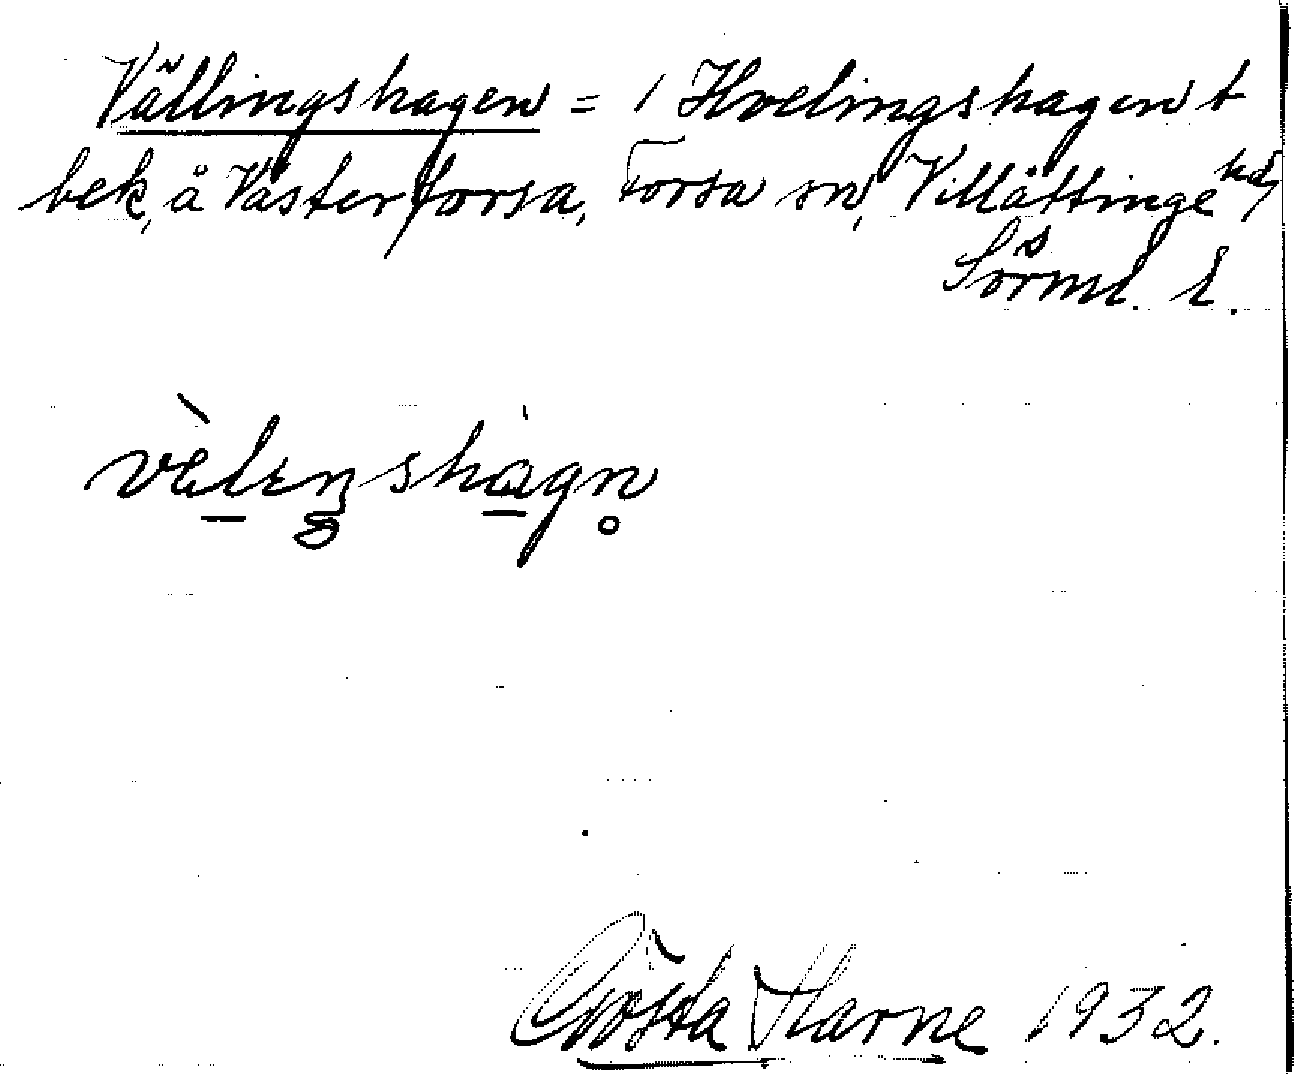 Vällingshagen = / Hvelingshagen t
bek, å Västerforsa, Forsa sn, Villåttinge hd,
Sörml. l.
vèlεŋshàgn̥
Gösta Harne 1932.